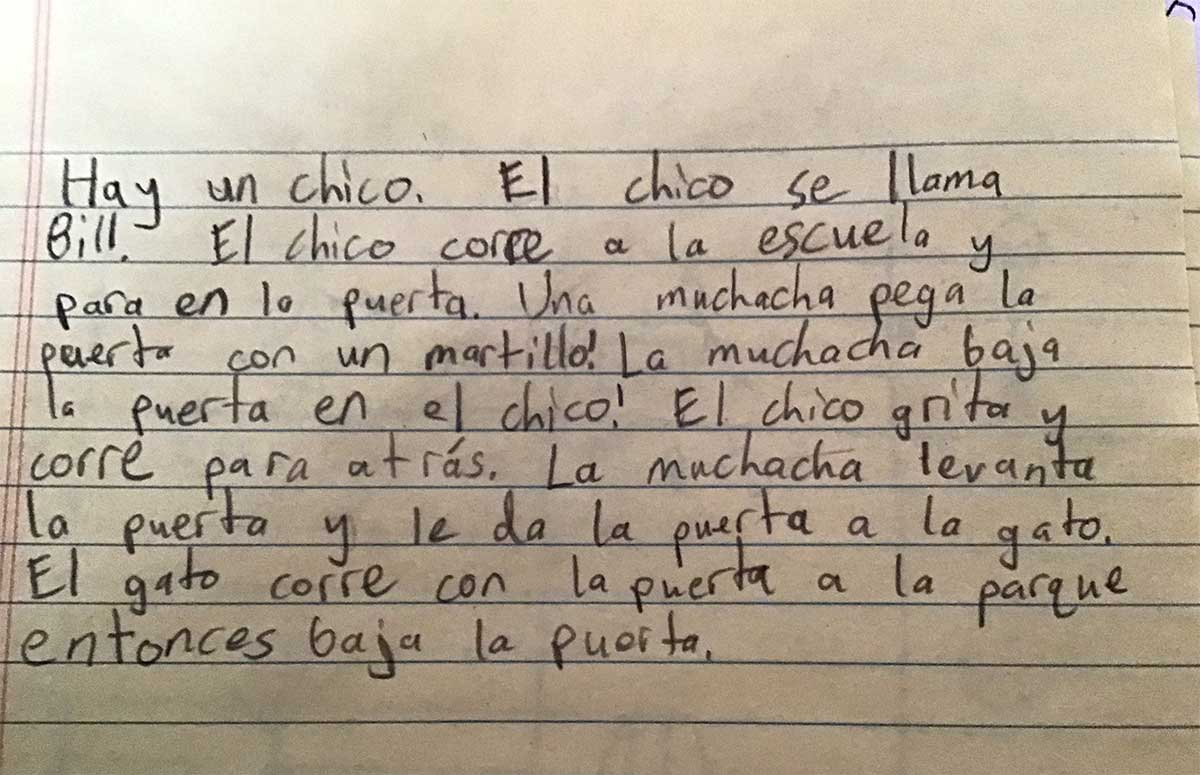 Hay un chico. El chico se llama
Bill. El chico corre a la escuela y
para en la puerta. Una muchacha pega la
puerta con un martillo! La muchacha baja
la puerta en el chico! El chico grita y
corre para atrás. La muchacha levanta
la puerta y le da la puerta a la gato.
El gato corre con la puerta a la parque
entonces baja la puerta.